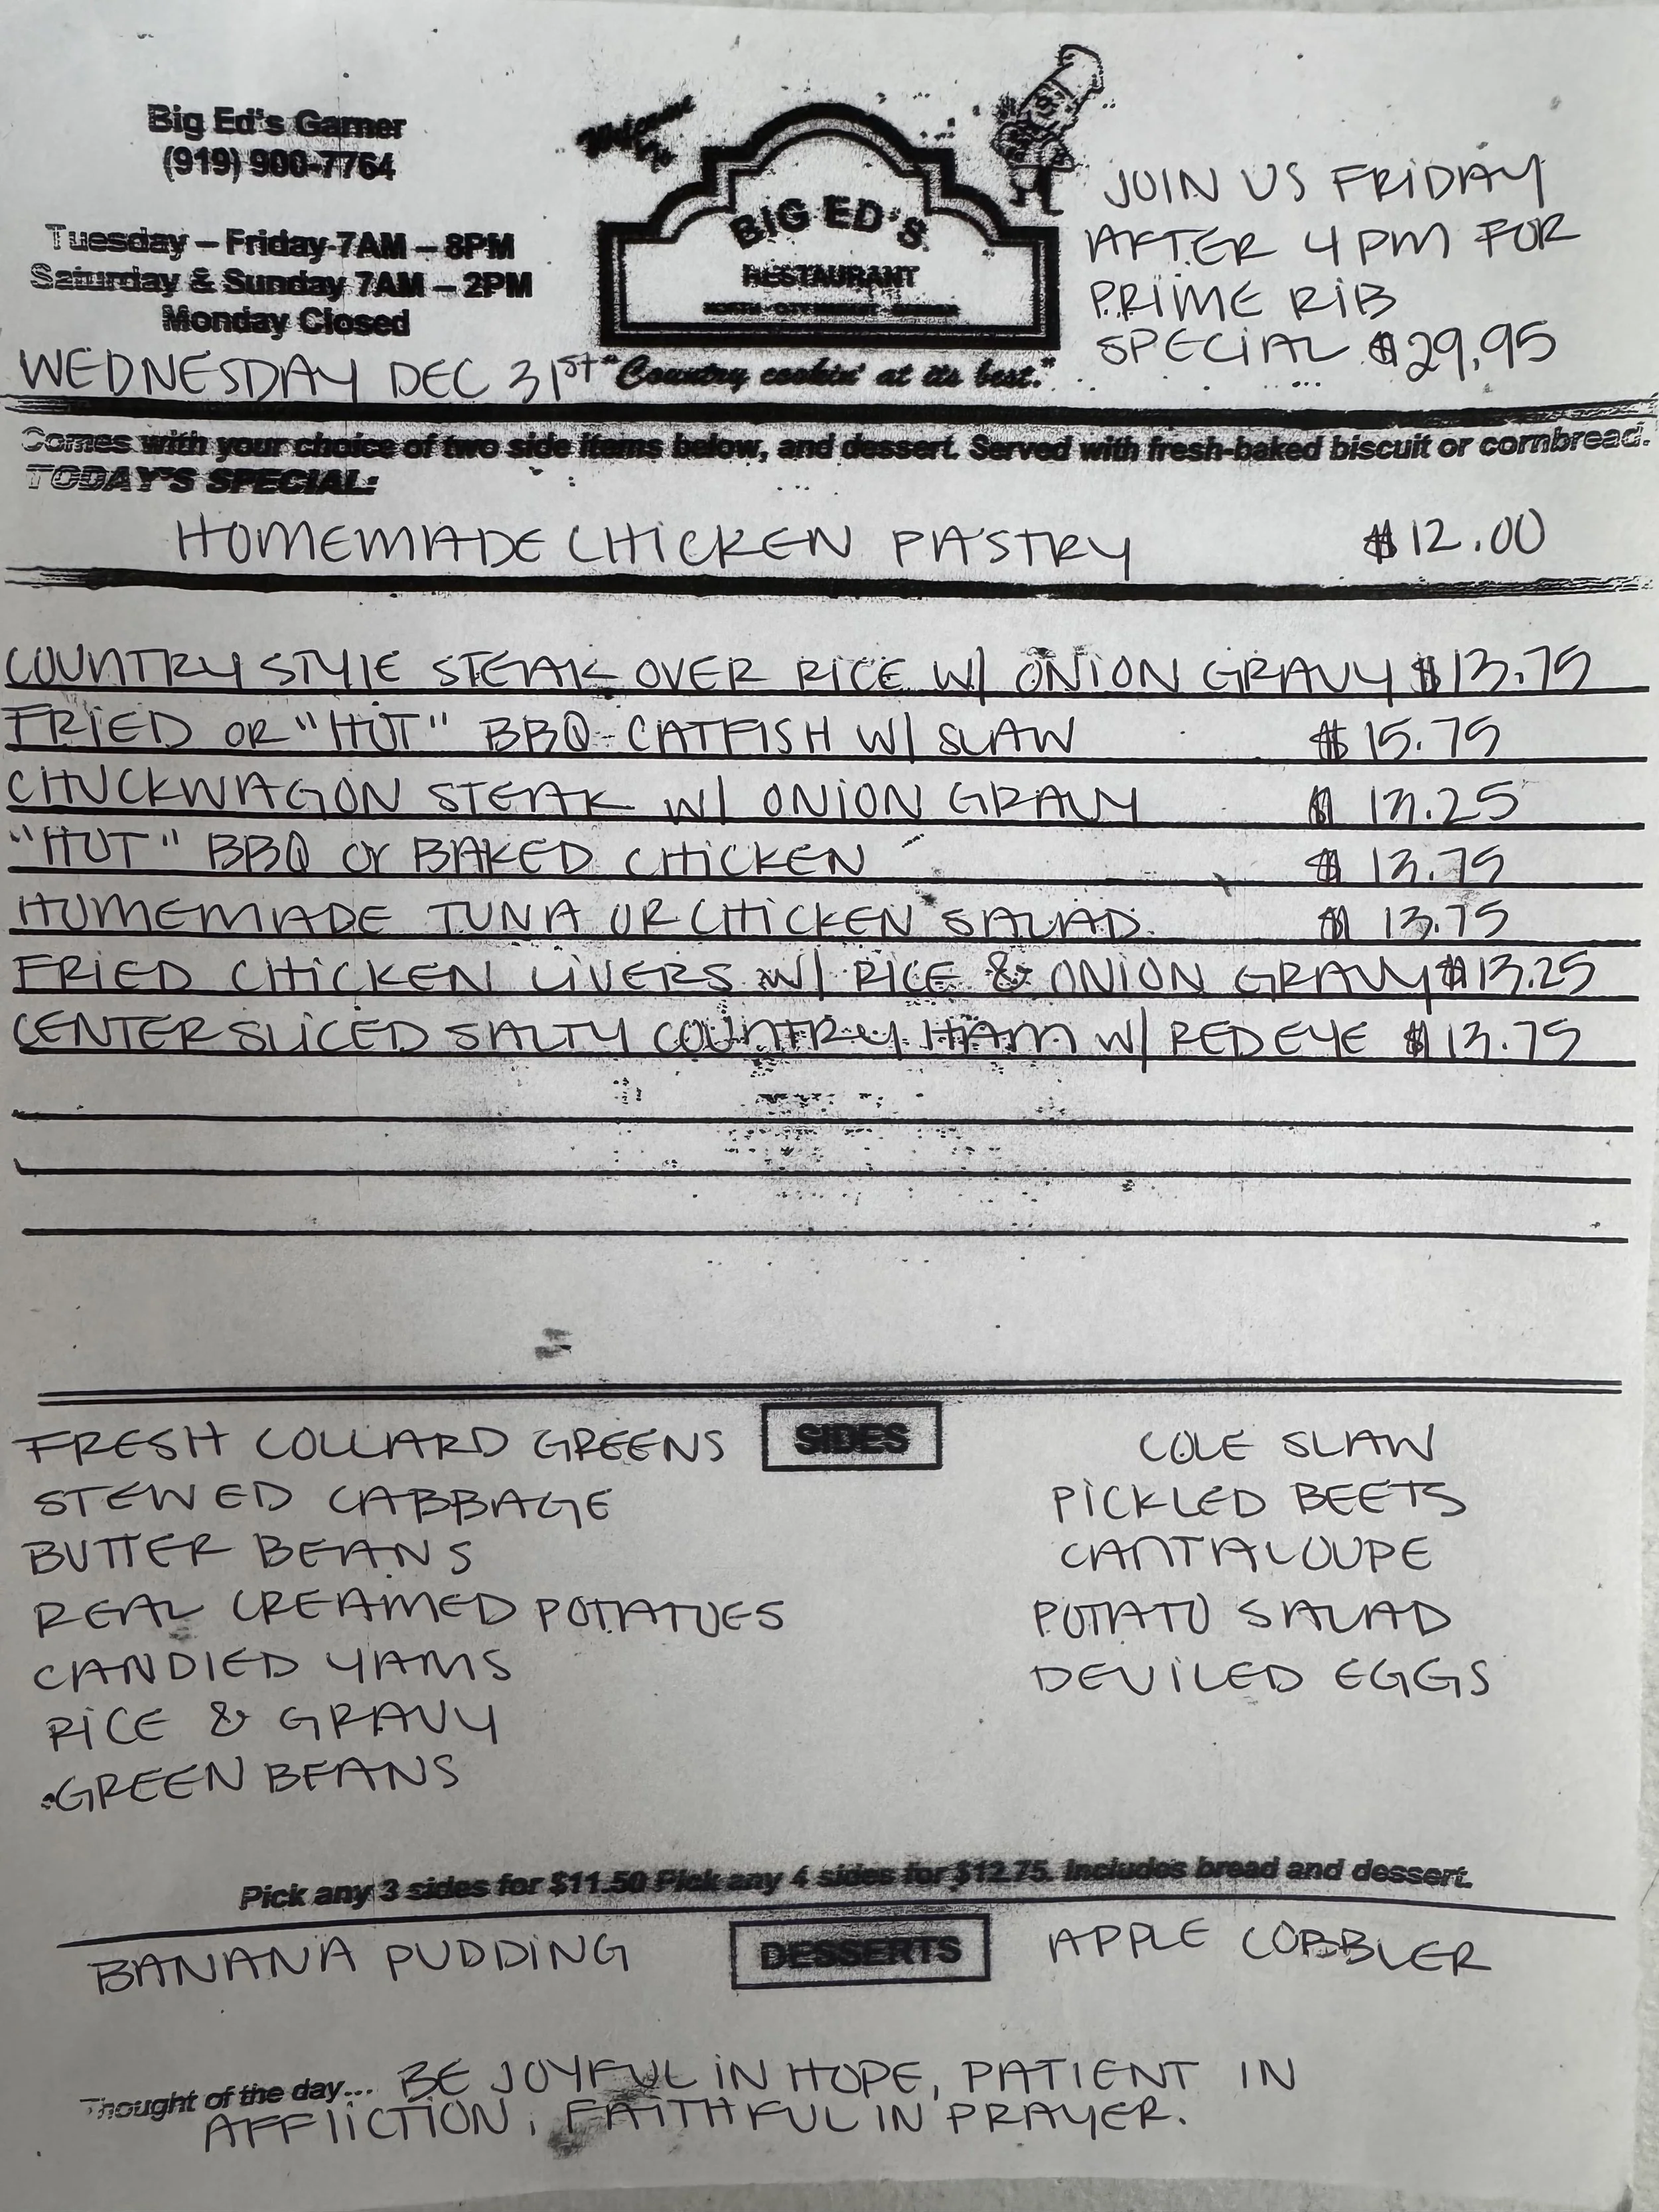 Big Ed's Garner
(919) 900-7764
Tuesday – Friday 7AM – 8PM
Saturday & Sunday 7AM – 2PM
Monday Closed
WEDNESDAY DEC 31st
Welcome To
BIG ED'S
RESTAURANT
"Country cookin' at its best."
JOIN US FRIDAY
AFTER 4 PM FOR
PRIME RIB
SPECIAL $29.95
Comes with your choice of two side items below, and dessert. Served with fresh-baked biscuit or cornbread.
TODAY'S SPECIAL:
HOMEMADE CHICKEN PASTRY $12.00
COUNTRY STYLE STEAK OVER RICE W/ ONION GRAVY $13.75
FRIED OR "HOT" BBQ CATFISH W/ SLAW $15.75
CHUCKWAGON STEAK W/ ONION GRAVY $13.25
"HOT" BBQ Or BAKED CHICKEN $13.75
HOMEMADE TUNA OR CHICKEN SALAD $13.75
FRIED CHICKEN LIVERS W/ RICE & ONION GRAVY $13.25
CENTER SLICED SALTY COUNTRY HAM W/ RED EYE $13.75
SIDES
FRESH COLLARD GREENS
STEWED CABBAGE
BUTTER BEANS
REAL CREAMED POTATOES
CANDIED YAMS
RICE & GRAVY
GREEN BEANS
COLE SLAW
PICKLED BEETS
CANTALOUPE
POTATO SALAD
DEVILED EGGS
Pick any 3 sides for $11.50 Pick any 4 sides for $12.75. Includes bread and dessert.
DESSERTS
BANANA PUDDING
APPLE COBBLER
Thought of the day... BE JOYFUL IN HOPE, PATIENT IN
AFFLICTION, FAITHFUL IN PRAYER.